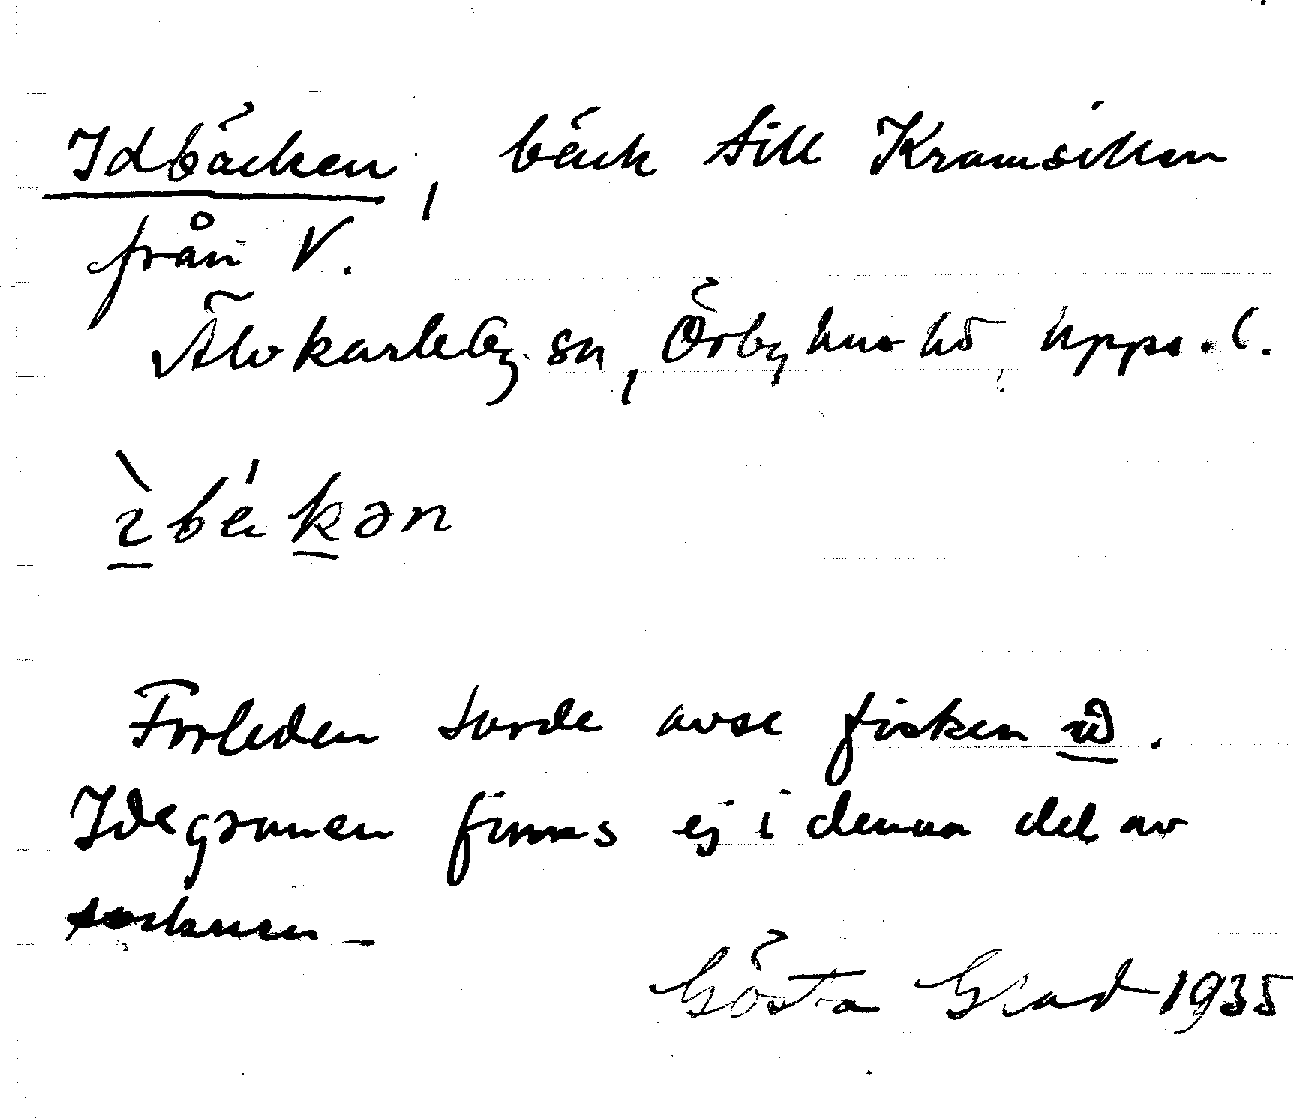 Idbäcken, bäck till Kramsikten
från V.
Älvkarleby sn, Örbyhus hd Upps. l.
ìbä́kən
Förleden torde avse fisken id.
Idegranen finnes ej i denna del av
socknen
Gösta Grad 1935